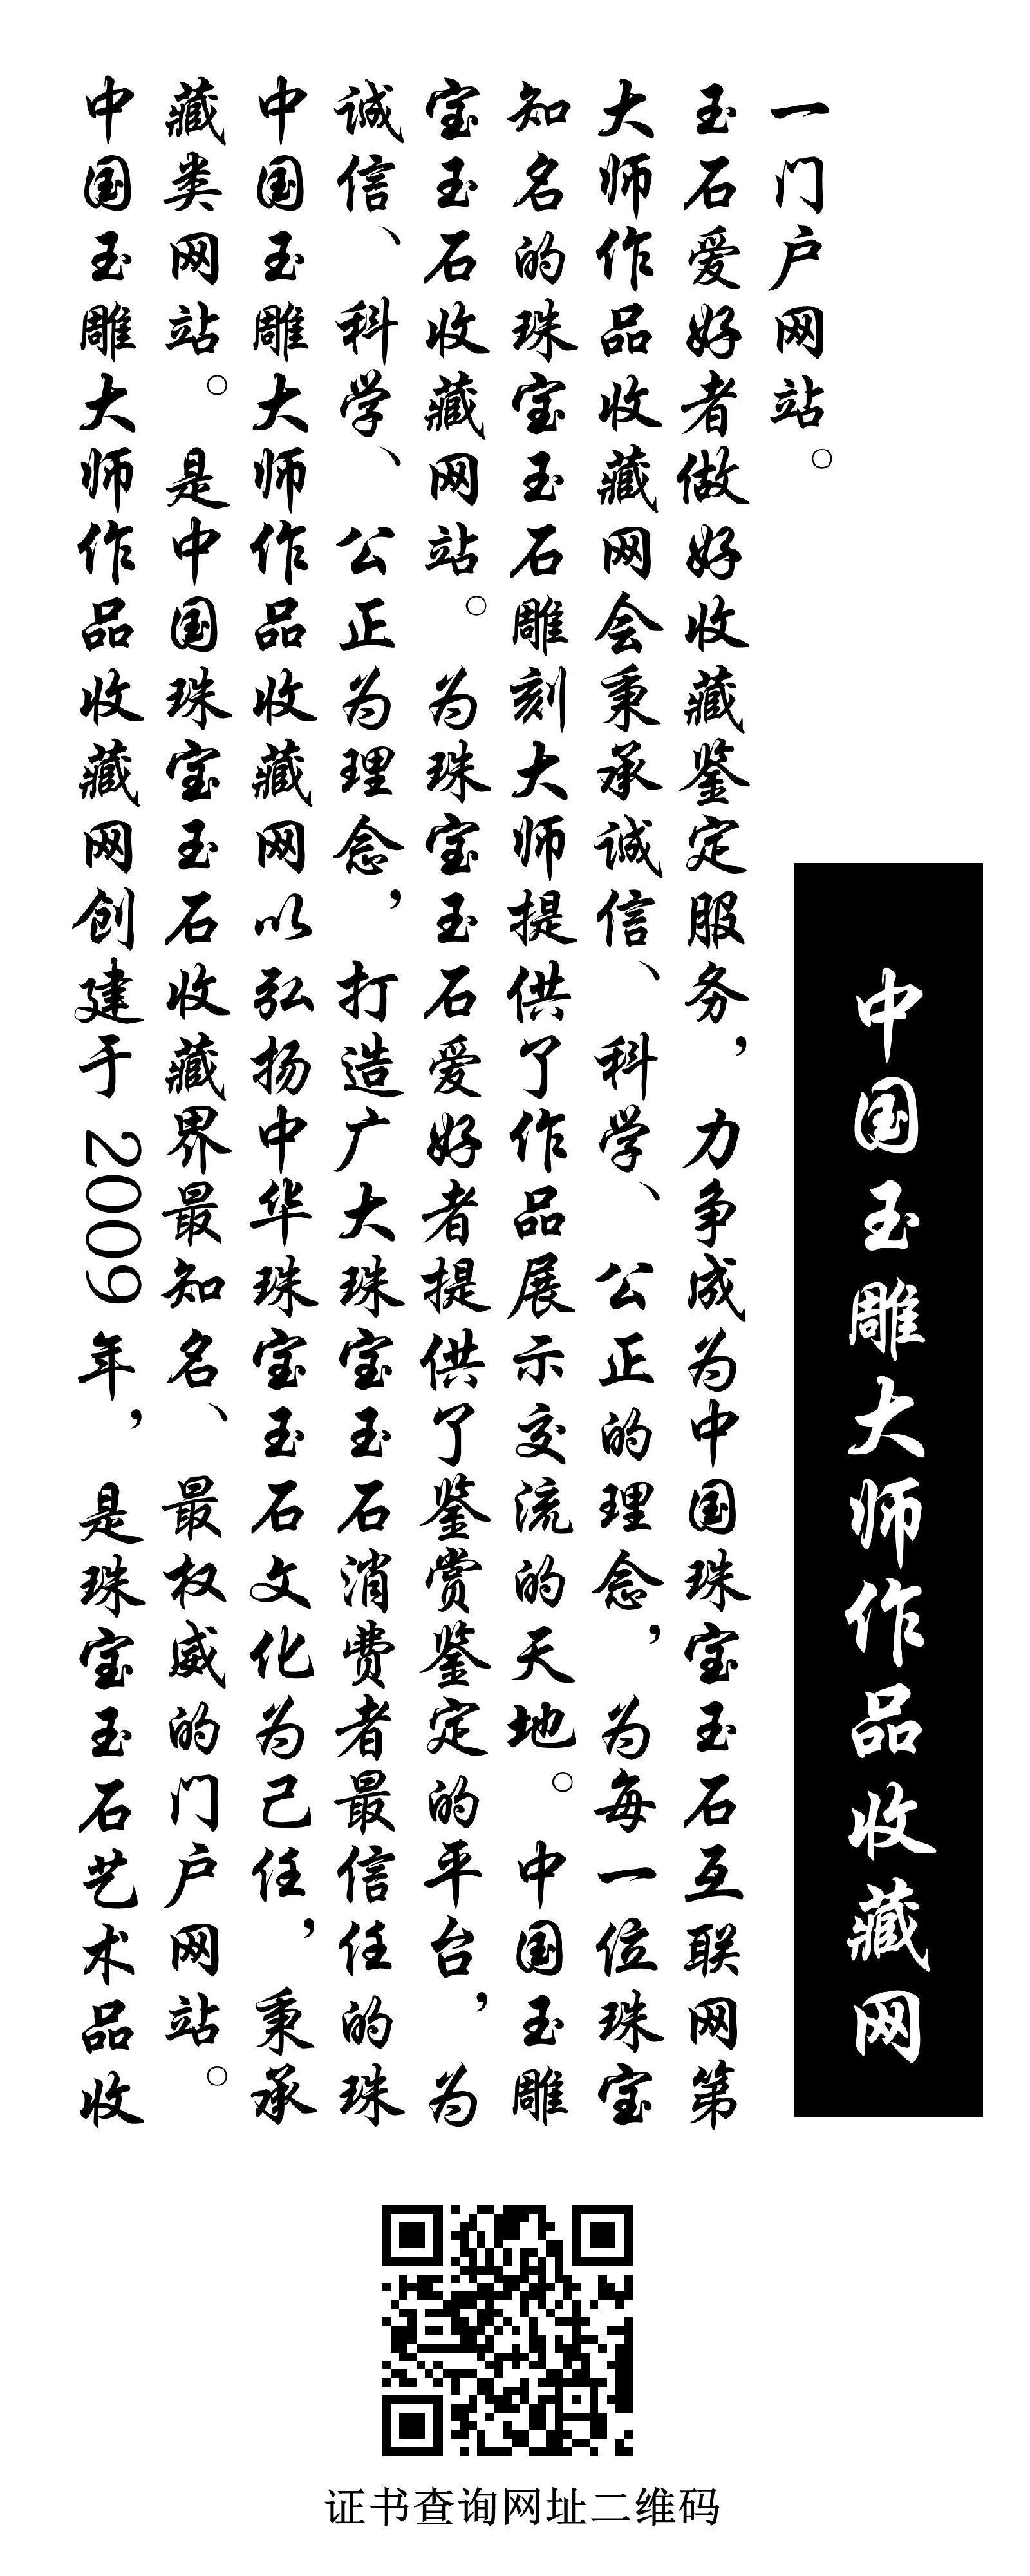 中国玉雕大师作品收藏网
中国玉雕大师作品收藏网创建于2009年，是珠宝玉石艺术品收
藏类网站。是中国珠宝玉石收藏界最知名、最权威的门户网站。
中国玉雕大师作品收藏网以弘扬中华珠宝玉石文化为己任，秉承
诚信、科学、公正为理念，打造广大珠宝玉石消费者最信任的珠
宝玉石收藏网站。为珠宝玉石爱好者提供了鉴赏鉴定的平台，为
知名的珠宝玉石雕刻大师提供了作品展示交流的天地。中国玉雕
大师作品收藏网会秉承诚信、科学、公正的理念，为每一位珠宝
玉石爱好者做好收藏鉴定服务，力争成为中国珠宝玉石互联网第
一门户网站。
证书查询网址二维码